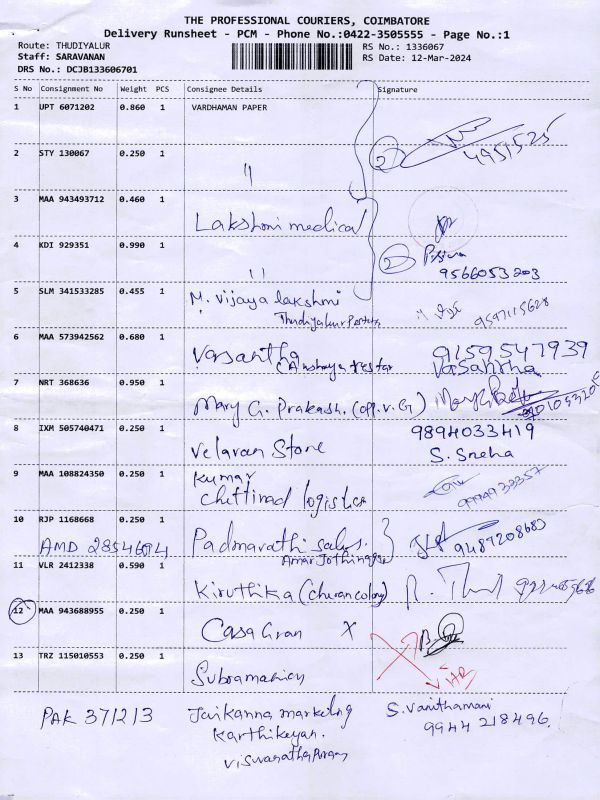 THE PROFESSIONAL COURIERS, COIMBATORE
Delivery Runsheet - PCM - Phone No.:0422-3505555 - Page No.:1
Route: THUDIYALUR RS No.: 1336067
Staff: SARAVANAN RS Date: 12-Mar-2024
DRS No.: DCJB133606701
S No Consignment No Weight PCS Consignee Details Signature
1 UPT 6071202 0.860 1 VARDHAMAN PAPER
2 4951525
2 STY 130067 0.250 1 "
3 MAA 943493712 0.460 1 Lakshmi medical
4 KDI 929351 0.990 1 " 2
9566053203
5 SLM 341533285 0.455 1 M. Vijaya lakshmi
9597115628
6 MAA 573942562 0.680 1 Vasantha 9159547939
Vasantha
7 NRT 368636 0.950 1 Mary G. Prakash.
8 IXM 505740471 0.250 1 Velavan Store 9894033419
S. Sneha
9 MAA 108824350 0.250 1 Kumar
Chettinad logistics
10 RJP 1168668 0.250 1 Padmarathi sales. 9487208683
AMD 28546094
11 VLR 2412338 0.590 1 Kiruthika (cheran colony)
12 MAA 943688955 0.250 1 Casa Gran X
13 TRZ 115010553 0.250 1 Subramanion
PAK 371213 Jaikanna marketing S. Vanithamani
Karthikeyan. 9944 218496
Viswanathapuram